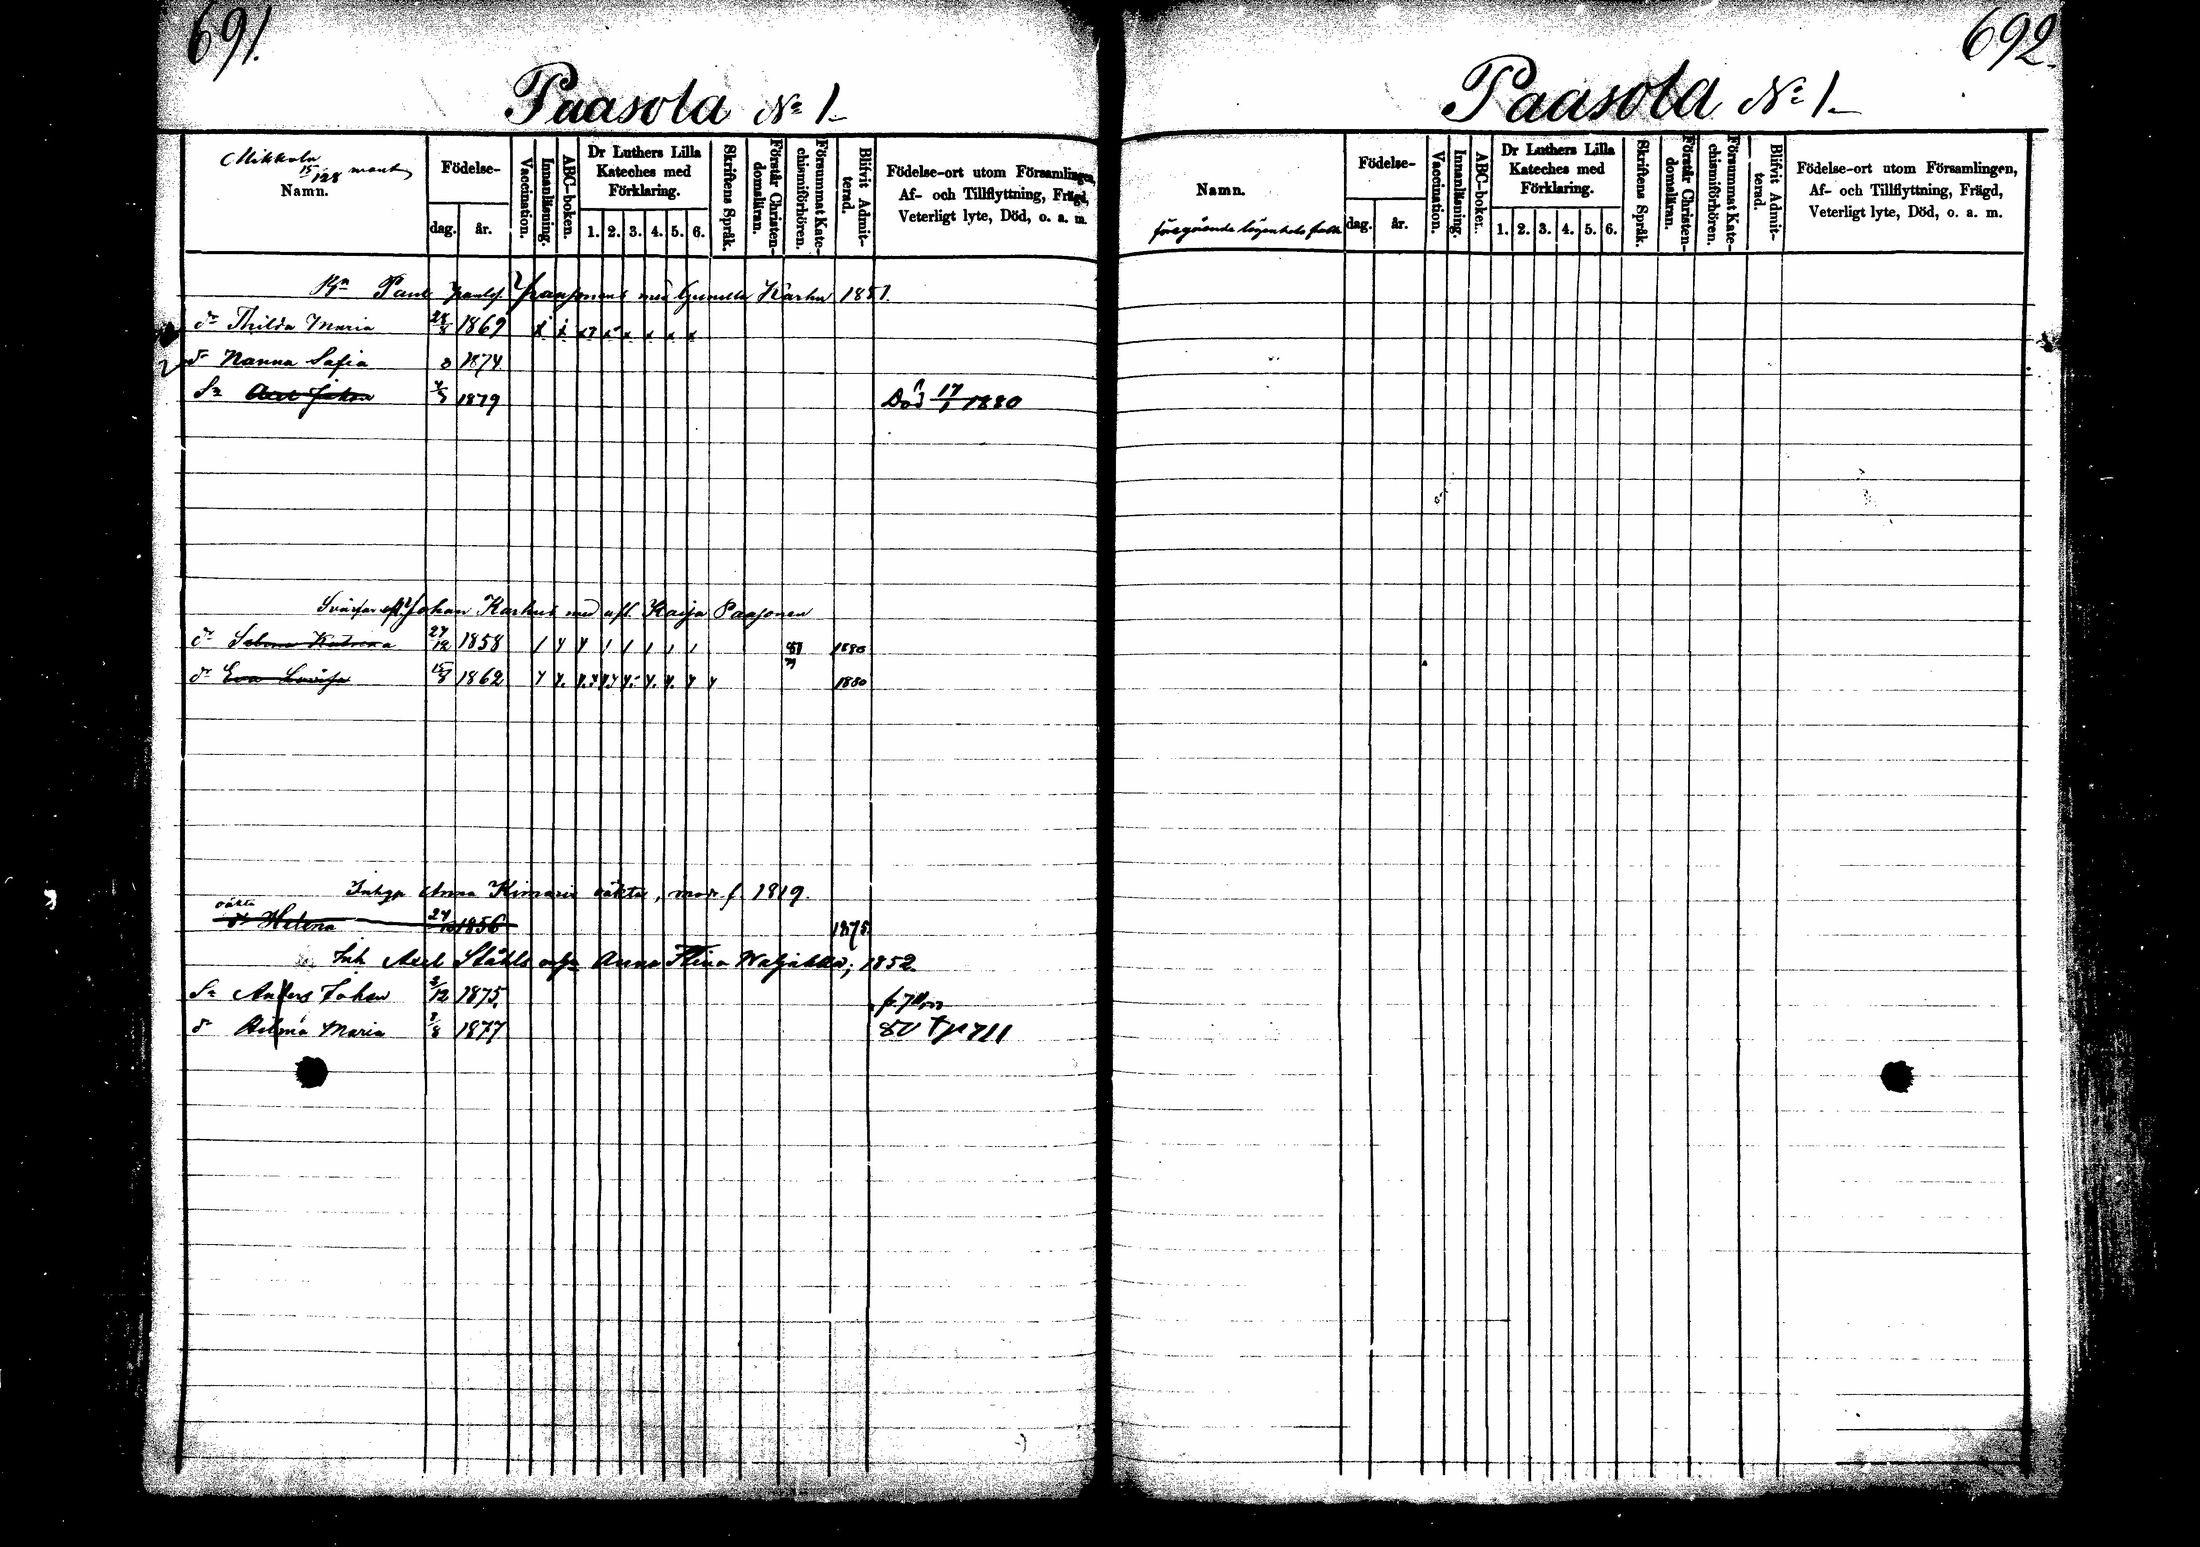 691.
Paasola No 1
Mikkola
15/128 mant
Namn.
Födelse-
dag.
år.
Vaccination.
Innanläsning.
ABC-boken.
Dr Luthers Lilla
Kateches med
Förklaring.
1. 2. 3. 4. 5. 6.
Skriftens Språk.
Förstår Christen-
domsläran.
Försummat Kate-
chismiförhören.
Blifvit Admit-
terad.
Födelse-ort utom Församlingen,
Af- och Tillflyttning, Frägd,
Veterligt lyte, Död, o. a. m.
Paul med Gunilla Karhu 1851.
dr Thilda Maria 28/8 1869
dr Nanna Sofia 3 1874
Sn 1879 Död 17/1 1880
Johan Karhus med afl. Kaisa Paasonen
dr Katrina 27/12 1858 1880
dr Eva Lovisa 15/8 1862 1880
Anna oäkta, 1819.
oäkta
dr Helena 24/10 1856 1875
Inh Axel Ståhls Anna Stina 1852.
Sn Anders Johan 2/12 1875.
dr Hilma Maria 8/8 1877 711
692.
Paasola No 1
Namn.
föregående lägenhets folk
Födelse-
dag.
år.
Vaccination.
Innanläsning.
ABC-boken.
Dr Luthers Lilla
Kateches med
Förklaring.
1. 2. 3. 4. 5. 6.
Skriftens Språk.
Förstår Christen-
domsläran.
Försummat Kate-
chismiförhören.
Blifvit Admit-
terad.
Födelse-ort utom Församlingen,
Af- och Tillflyttning, Frägd,
Veterligt lyte, Död, o. a. m.